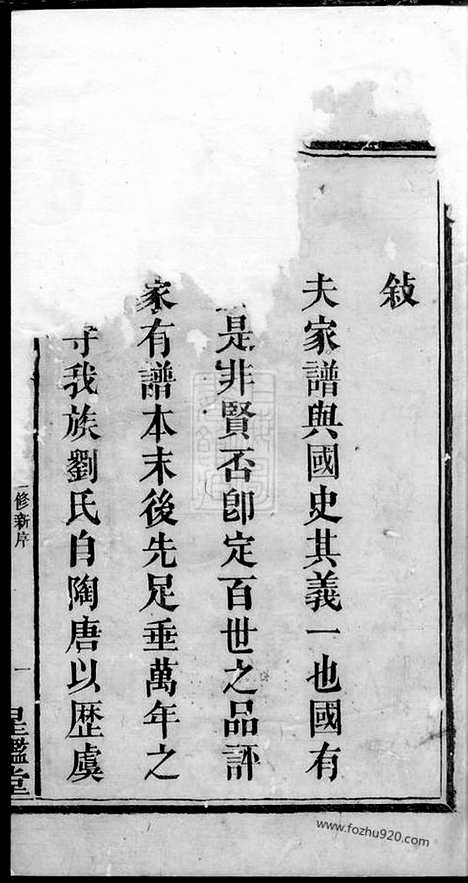 敍
夫家譜與國史其義一也國有
是非賢否卽定百世之品評
家有譜本末後先足垂萬年之
守我族劉氏自陶唐以歷虞
修新序
一
鑑堂
www.fozhu920.com